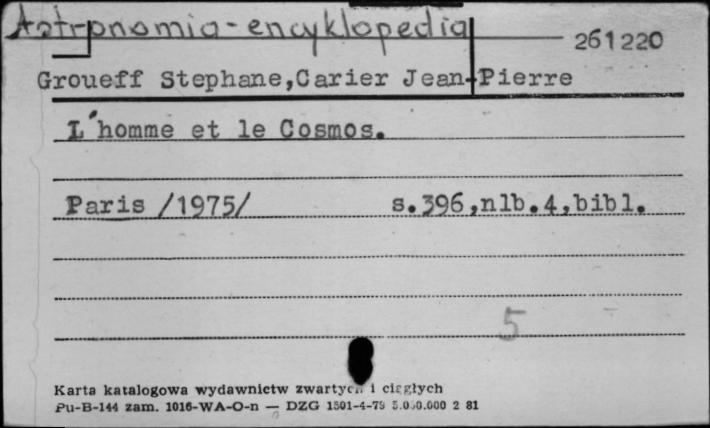 Astronomia - encyklopedia
261220
Groueff Stephane,Carier Jean-Pierre
L'homme et le Cosmos.
Paris /1975/ s.396,nlb.4,bibl.
5
Karta katalogowa wydawnictw zwartych i ciągłych
Pu-B-144 zam. 1016-WA-O-n — DZG 1501-4-79 5.000.000 2 81